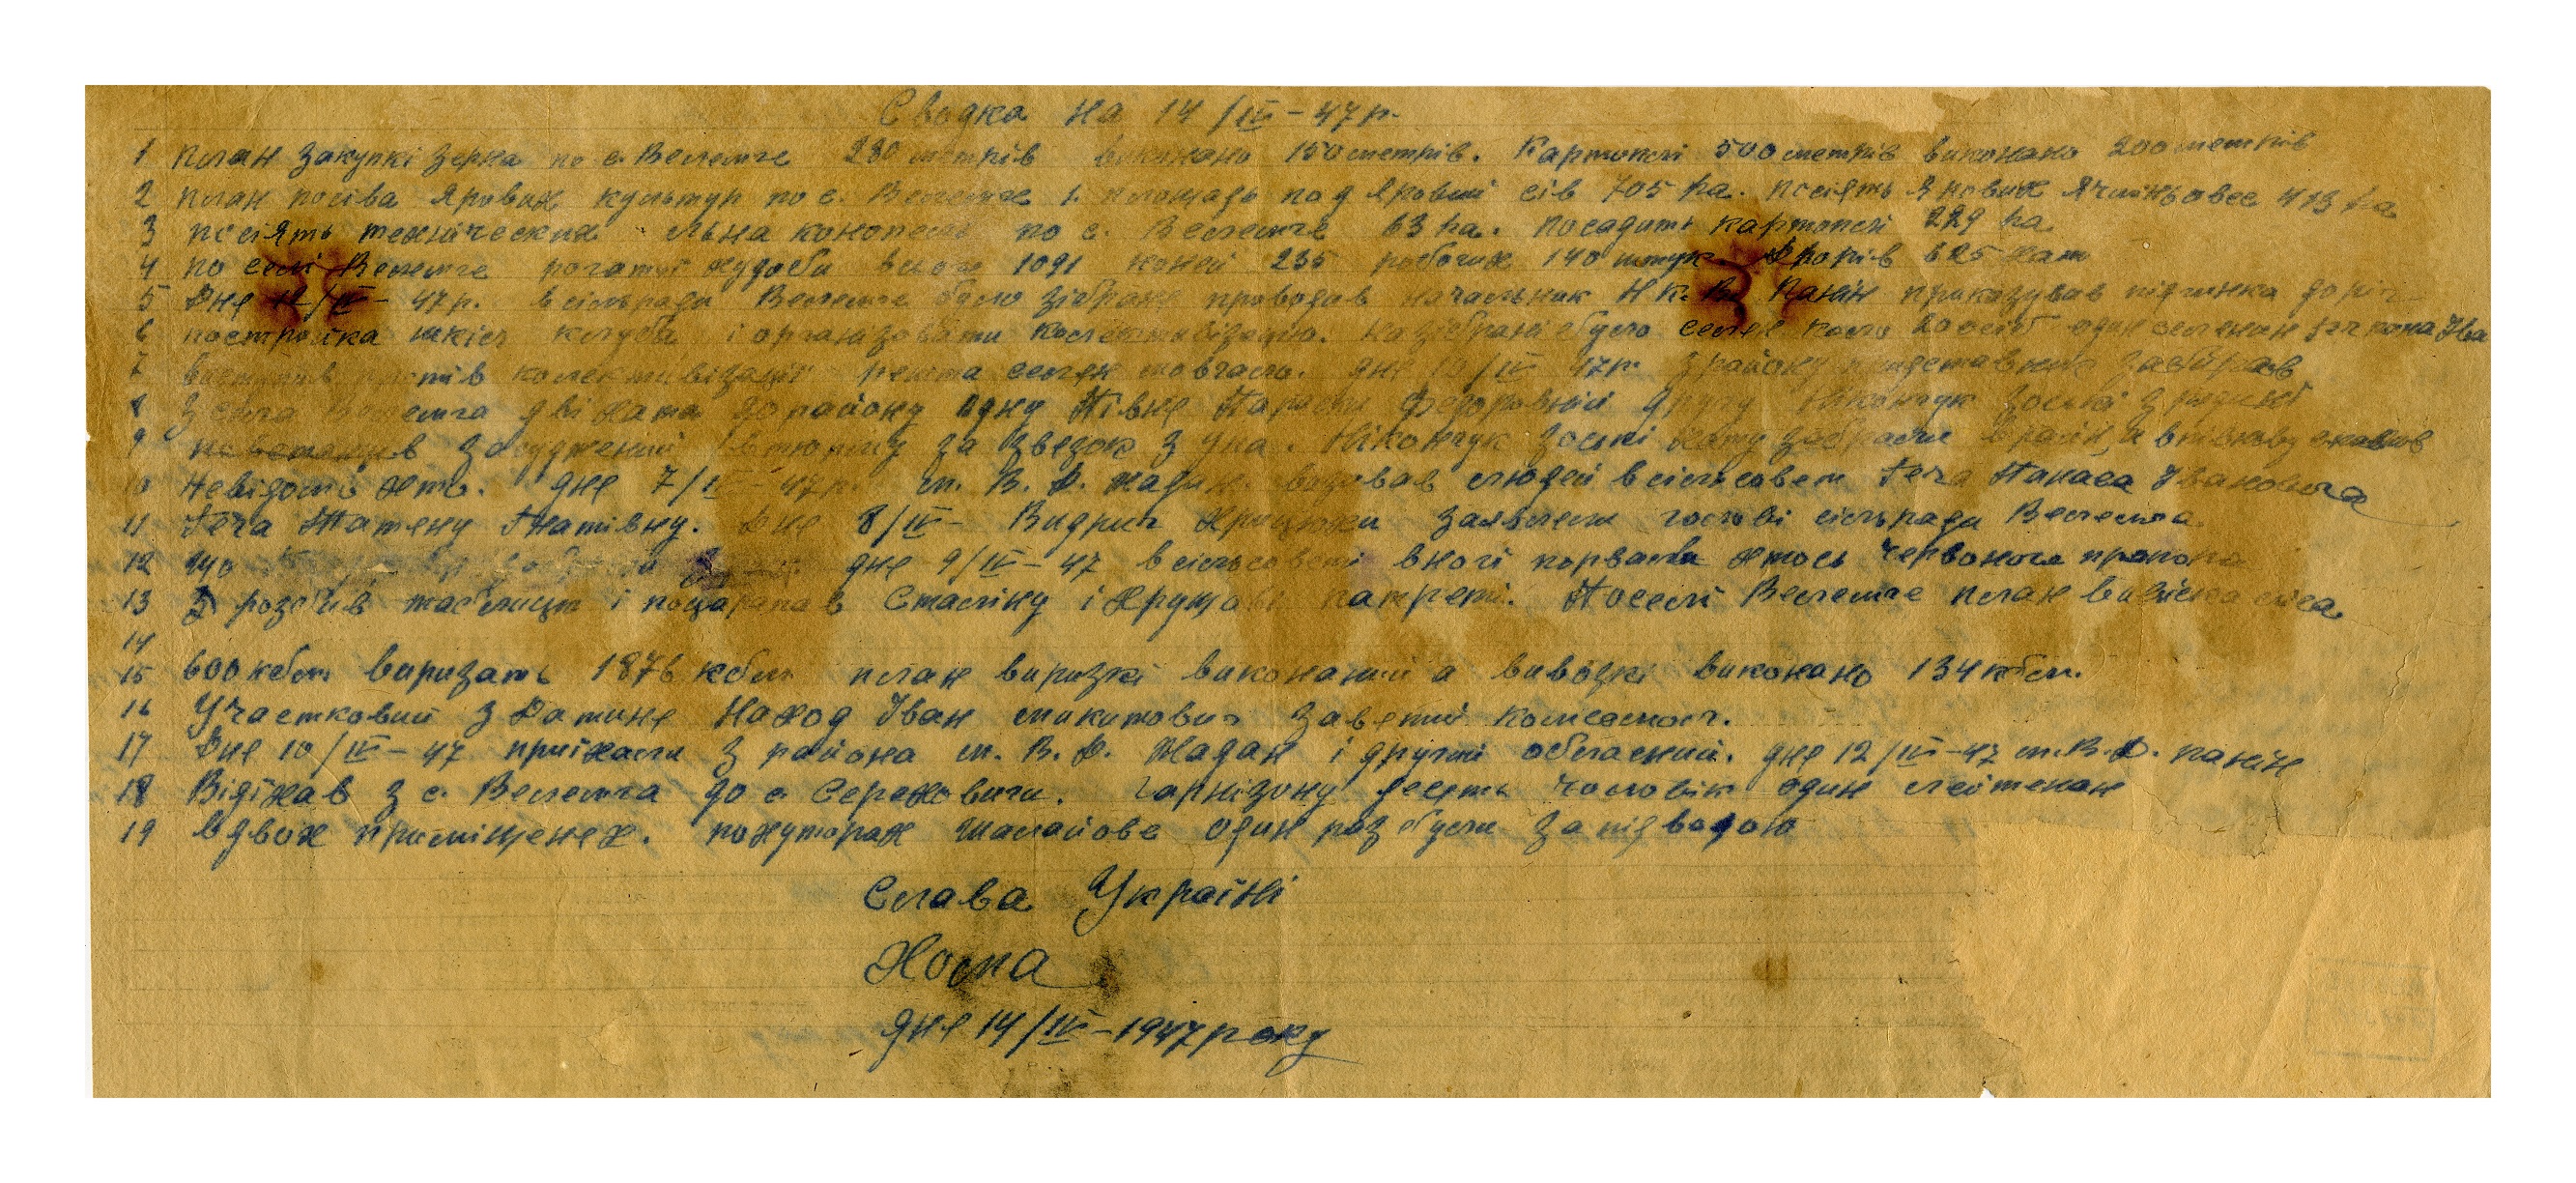 Сводка на 14/IV – 47 р.
1 план закупкі зерна по с. Велемче 280 метрів виконано 150 метрів. Картоплі 500 метрів виконано 200 метрів
2 план посіва ярових культур по с. Велемче 1. площадь под яровий сів 705 га. псіять ярових ячміньовес 413 га
3 псіять технічиских льна конопель по с. Велемче 63 га. посадить картоплі 229 га.
4 по селі Велемче рогатої худоби всього 1091 коней 235 робочих 140 штук. Дворів 625 хат
5 Дня 12/IV – 47 р. в сільради Велемче було зібране проводав начальник Н.К.В. Панін приказував підчинка доріг
6 постройка шкіл клуба і организовати колективізацію. на зібрані було селян коло 20 осіб один селянин Геч
7 виступив протів колективізації решта селян мовчало. дня 10/IV 47 р. з району представник забірав
8 з села Велемча дві хати до району одну Півня Федоровній другу Нікончук Зоські з
9 засуджений в тюрму за звезок з упа. Нікончук Зоські хату забрали в район, а
10 Невідомо хто. дня 7/IV – 47 р. м. В. Д. Жадан визвав людей в сільсовет Геча Панаса Івановича
11 Геча Татяну Гнатівну. Дня 8/IV – Видрич заявляли голові сільради Велемча
12 що дня 9/IV – 47 в сільсоветі вночі порвала хтось червоного прапора
13 розбів таблицю і поцарапав Сталіну і Хрущову патреті. По селі Велемче план вивізка ліса
14
15 600 кбм виризать 1876 кбм план виризкі виконаний а вивозкі виконано 134 кбм.
16 Участковий з Датиня Наход Іван микитович завзятий комсомол.
17 Дня 10/IV – 47 приїхали з района м. В. Д. Жадан і другий обласний. дня 12/IV – 47 м. В. Д. панін
18 Відїхав з с. Велемча до с. Сереховичи. Гарнізону десять чоловік один лейтенан
19 в двох приміщенех. по хуторах один раз були за підводою
Слава Україні
Хома
дня 14/IV – 1947 року